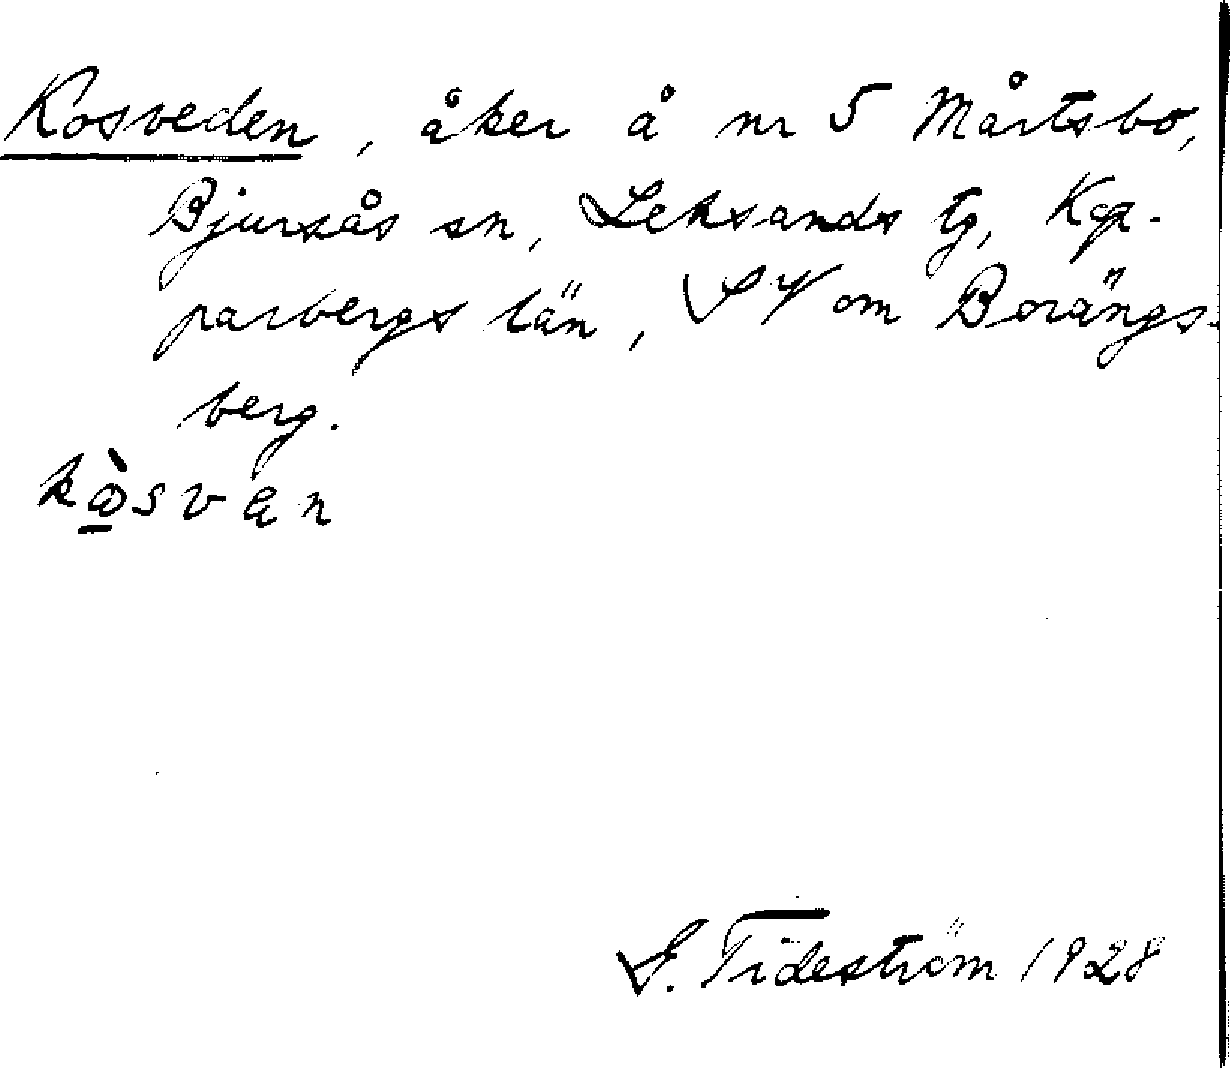 Kosveden, åker å nr 5 Mårtsbo,
Bjursås sn, Leksands tg, Kop-
parbergs län, SV om Borängs-
berg.
kòsvən
G. Tideström 1928